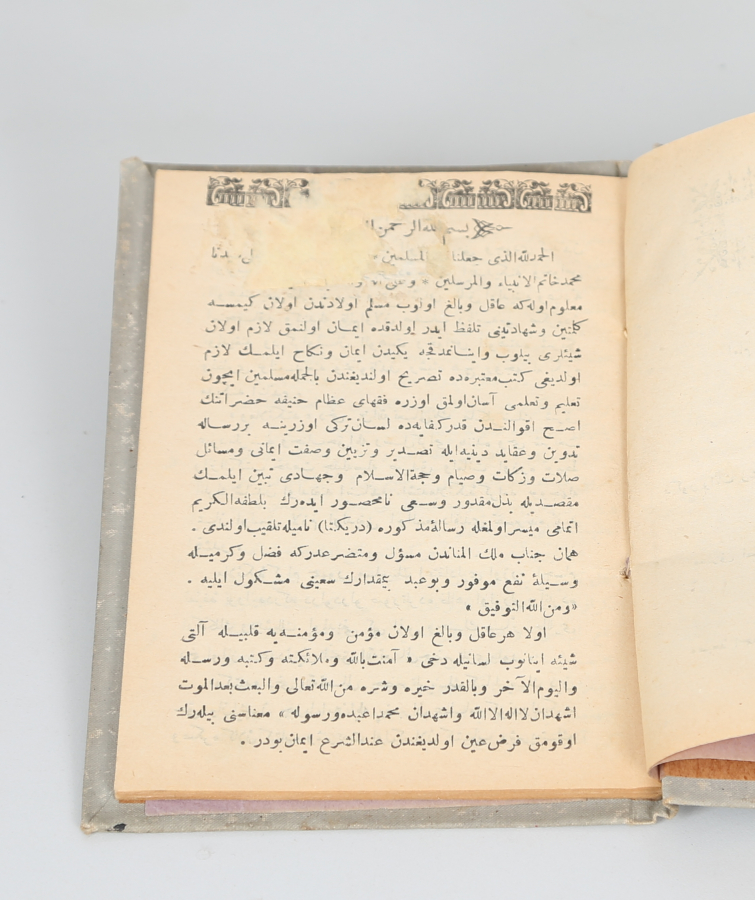 بسم الله الرحمن
الحمدلله الذى جعلنا المسلمين
محمد خاتم الانبياء والمرسلين
معلوم اوله كه عاقل وبالغ اولوب مسلم اولادندن اولان كيمسه
كلمتين وشهادتينى تلفظ ايدر اولدقده ايمان اولنمق لازم اولان
شيئلرى بيلوب واينانمدقجه يكيدن ايمان ونكاح ايلمك لازم
اولديغى كتب معتبره ده تصريح اولنديغندن بالجمله مسلمين ايچون
تعليم وتعلمى آسان اولمق اوزره فقهاى عظام حنيفه حضراتنك
اصح اقوالندن قدر كفايه ده لسان تركى اوزرينه بر رساله
تدوين وعقايد دينيه ايله تصدير وتزيين وصفت ايمانى ومسائل
صلات وزكات وصيام وحجة الاسلام وجهادى تبين ايلمك
مقصديله بذل مقدور وسعى نامحصور ايده رك بلطفه الكريم
اتمامى ميسر اولمغله رسالهٔ مذكوره (دريكتا) ناميله تلقيب اولندى .
همان جناب ملك المناندن مسؤل ومتضرعدركه فضل وكرميله
وسيلهٔ نفع موفور وبو عبد بيمقدارك سعينى مشكول ايليه .
«ومن الله التوفيق »
اولا هر عاقل وبالغ اولان مؤمن ومؤمنه يه قلبيله آلتى
شيئه اينانوب لسانيله دخى « آمنت بالله وملائكته وكتبه ورسله
واليوم الآخر وبالقدر خيره وشره من الله تعالى والبعث بعد الموت
اشهد ان لا اله الا الله واشهد ان محمدا عبده ورسوله » معناسنى بيله رك
اوقومق فرض عين اولديغندن عند الشرع ايمان بودر .